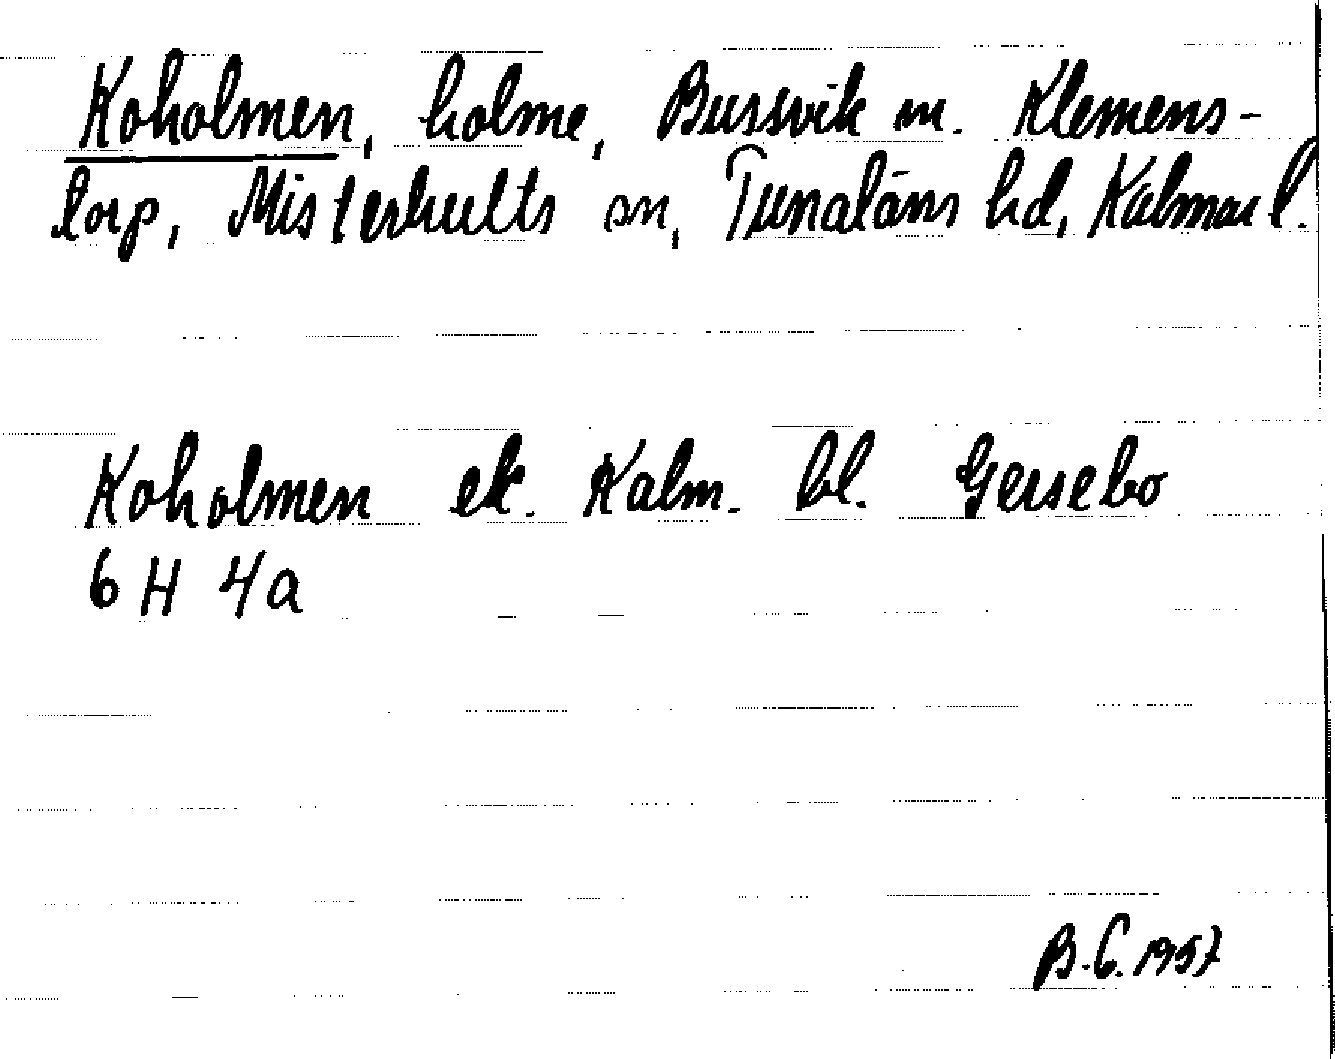 Koholmen, holme, Bussvik m. Klemens-
torp, Misterhults sn, Tunaläns hd, Kalmar l.
Koholmen ek. Kalm. bl. Gersebo
6 H 4a
B.G. 1957